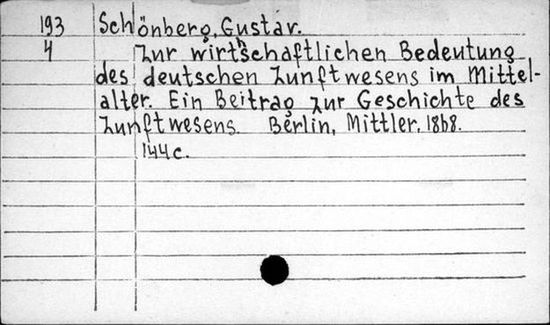 193 Schönberg, Gustav.
4 Zur wirthschaftlichen Bedeutung
des deutschen Zunftwesens im Mittel-
alter. Ein Beitrag zur Geschichte des
Zunftwesens. Berlin, Mittler, 1868.
144 c.